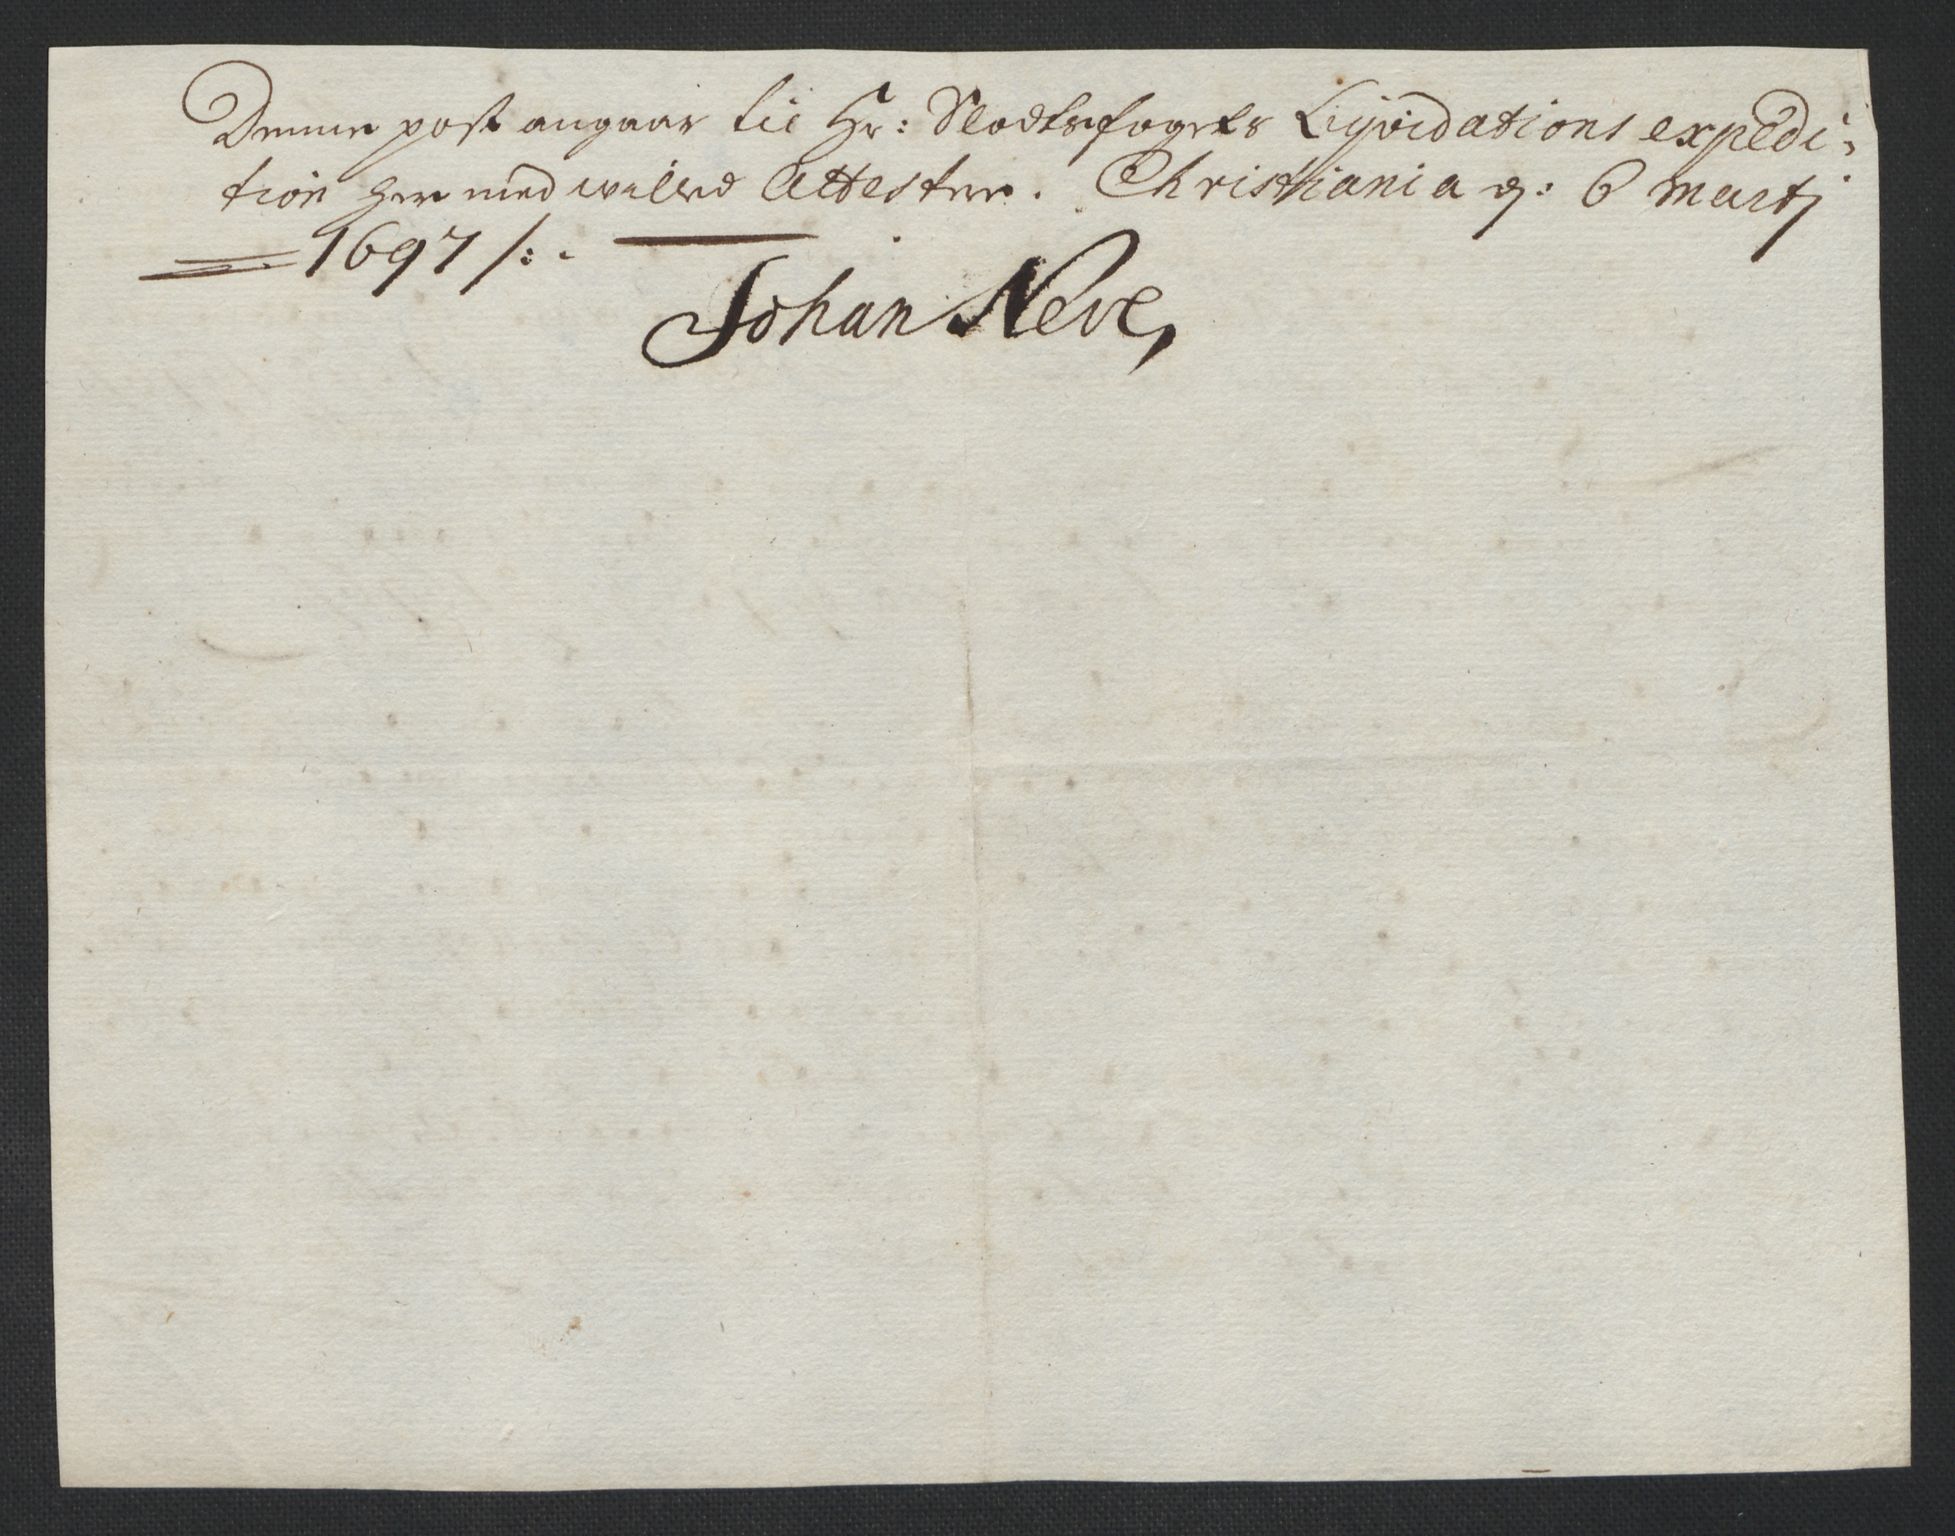 Denne post angaar til Hr: Slodtsfogets Liqvidations expedi-
tion her med willed Attestere. Christiania d: 6 Martj
1697 /:
Johan Neve,